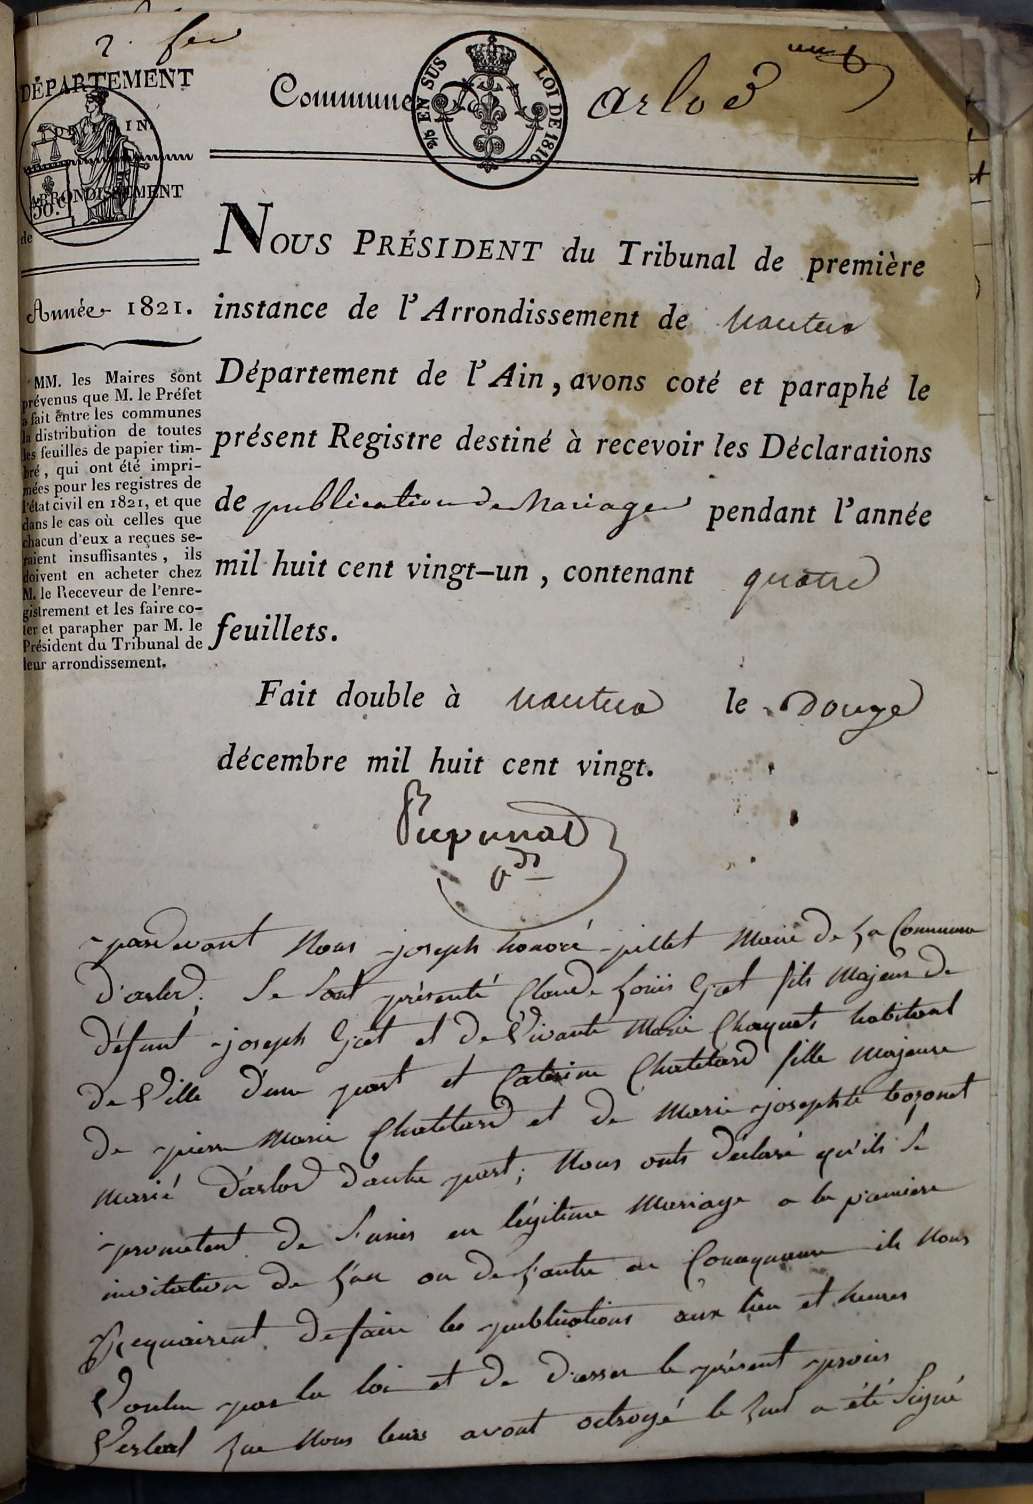 2. feu
DÉPARTEMENT
IN.
ARRONDISSEMENT
50. C
de
Commune d
EN SUS
LOI DE 1816
arlod
un
Année 1821.
MM. les Maires sont
prévenus que M. le Préfet
a fait entre les communes
la distribution de toutes
les feuilles de papier tim-
bré, qui ont été impri-
mées pour les registres de
l'état civil en 1821, et que
dans le cas où celles que
chacun d'eux a reçues se-
raient insuffisantes, ils
doivent en acheter chez
M. le Receveur de l'enre-
gistrement et les faire co-
ter et parapher par M. le
Président du Tribunal de
leur arrondissement.
NOUS PRÉSIDENT du Tribunal de première
instance de l'Arrondissement de nantua
Département de l'Ain, avons coté et paraphé le
présent Registre destiné à recevoir les Déclarations
de publication de Mariage pendant l'année
mil huit cent vingt-un, contenant quatre
feuillets.
Fait double à nantua le Douze
décembre mil huit cent vingt.
pardevant Nous joseph honoré pillet Maire de La Commune
d'arlod. Se Sont présenté Claude Louis Goet fils Majeur de
défunt joseph Goet et de Vivante Marie Chaquet, habitant
de Ville d'une part et Caterine Chatelard fille Majeure
de pierre Marie Chatelard et de Marie josephte bozonet
Marié d'arlod d'autre part; Nous onts déclaré qu'ils Se
prometent de S'unir en légitime Mariage a la première
invitation de L'un ou de L'autre en Consequence ils Nous
Requairent de faire les publications aux lieu et heures
Voulu par la loi et de dresser le présent procès
Verbal que Nous leurs avont octroyé le quel a été Signé